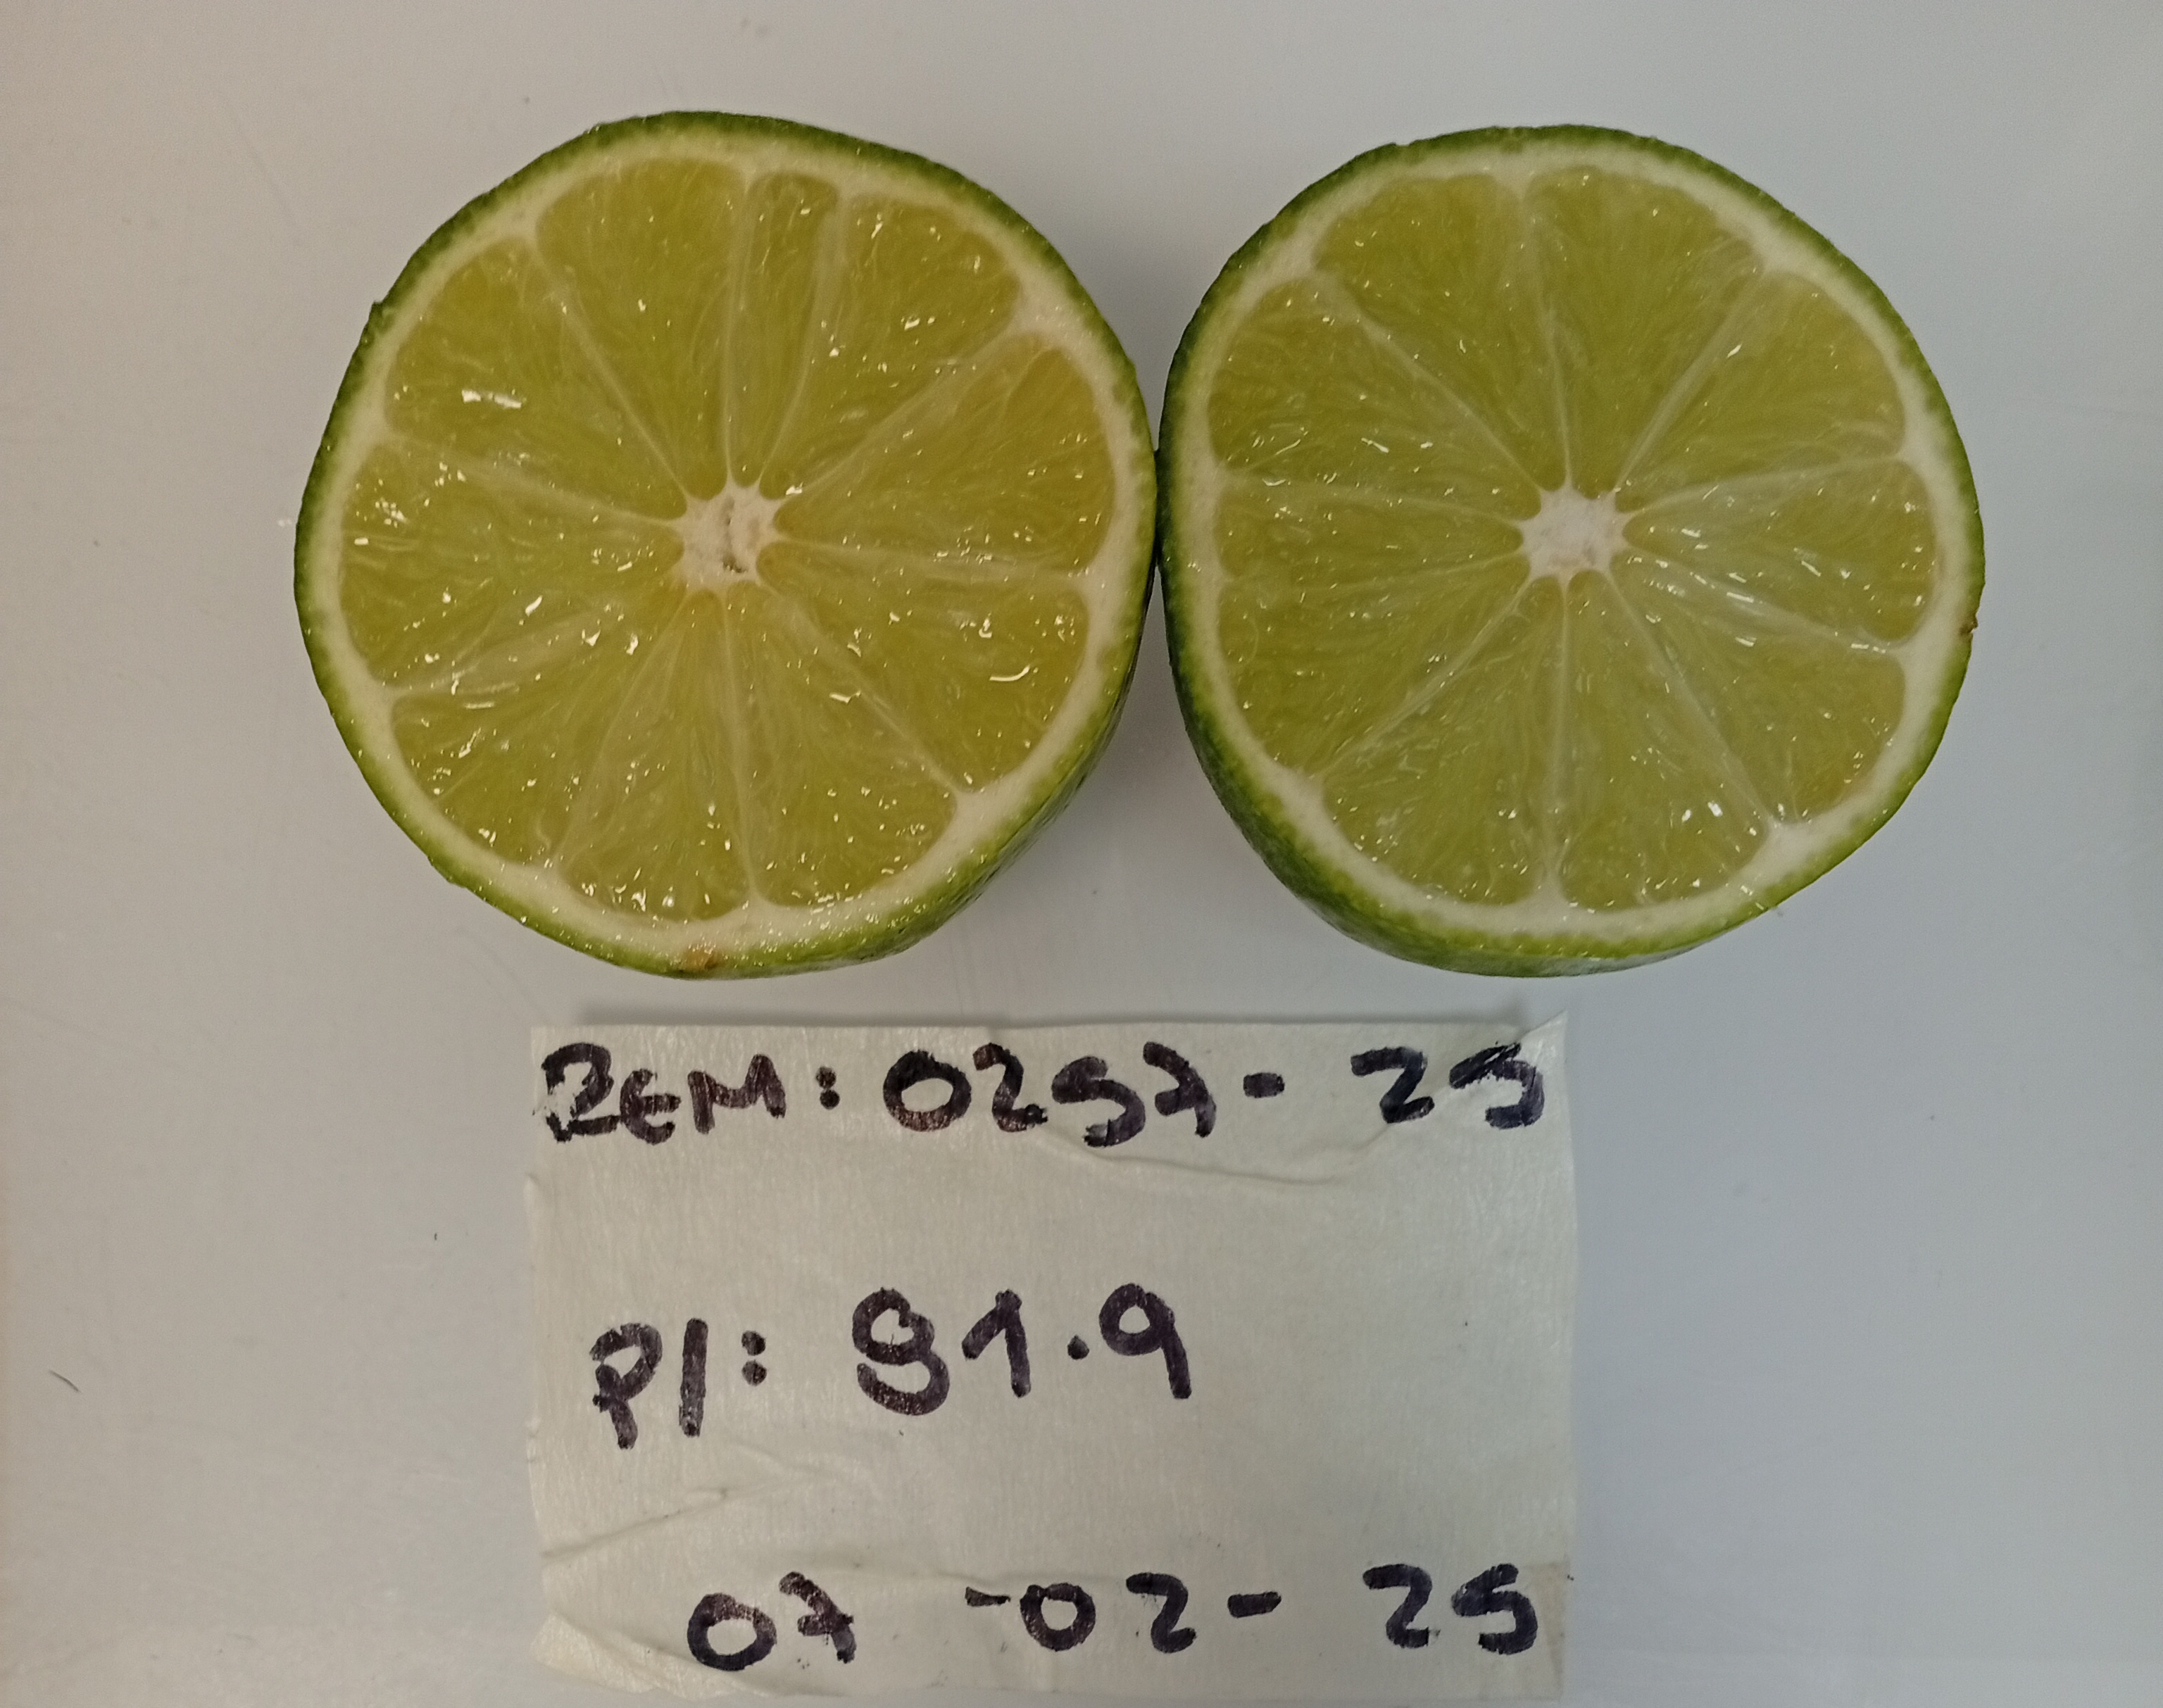 REM: 0257-25
P/: 81.9
07-02-25